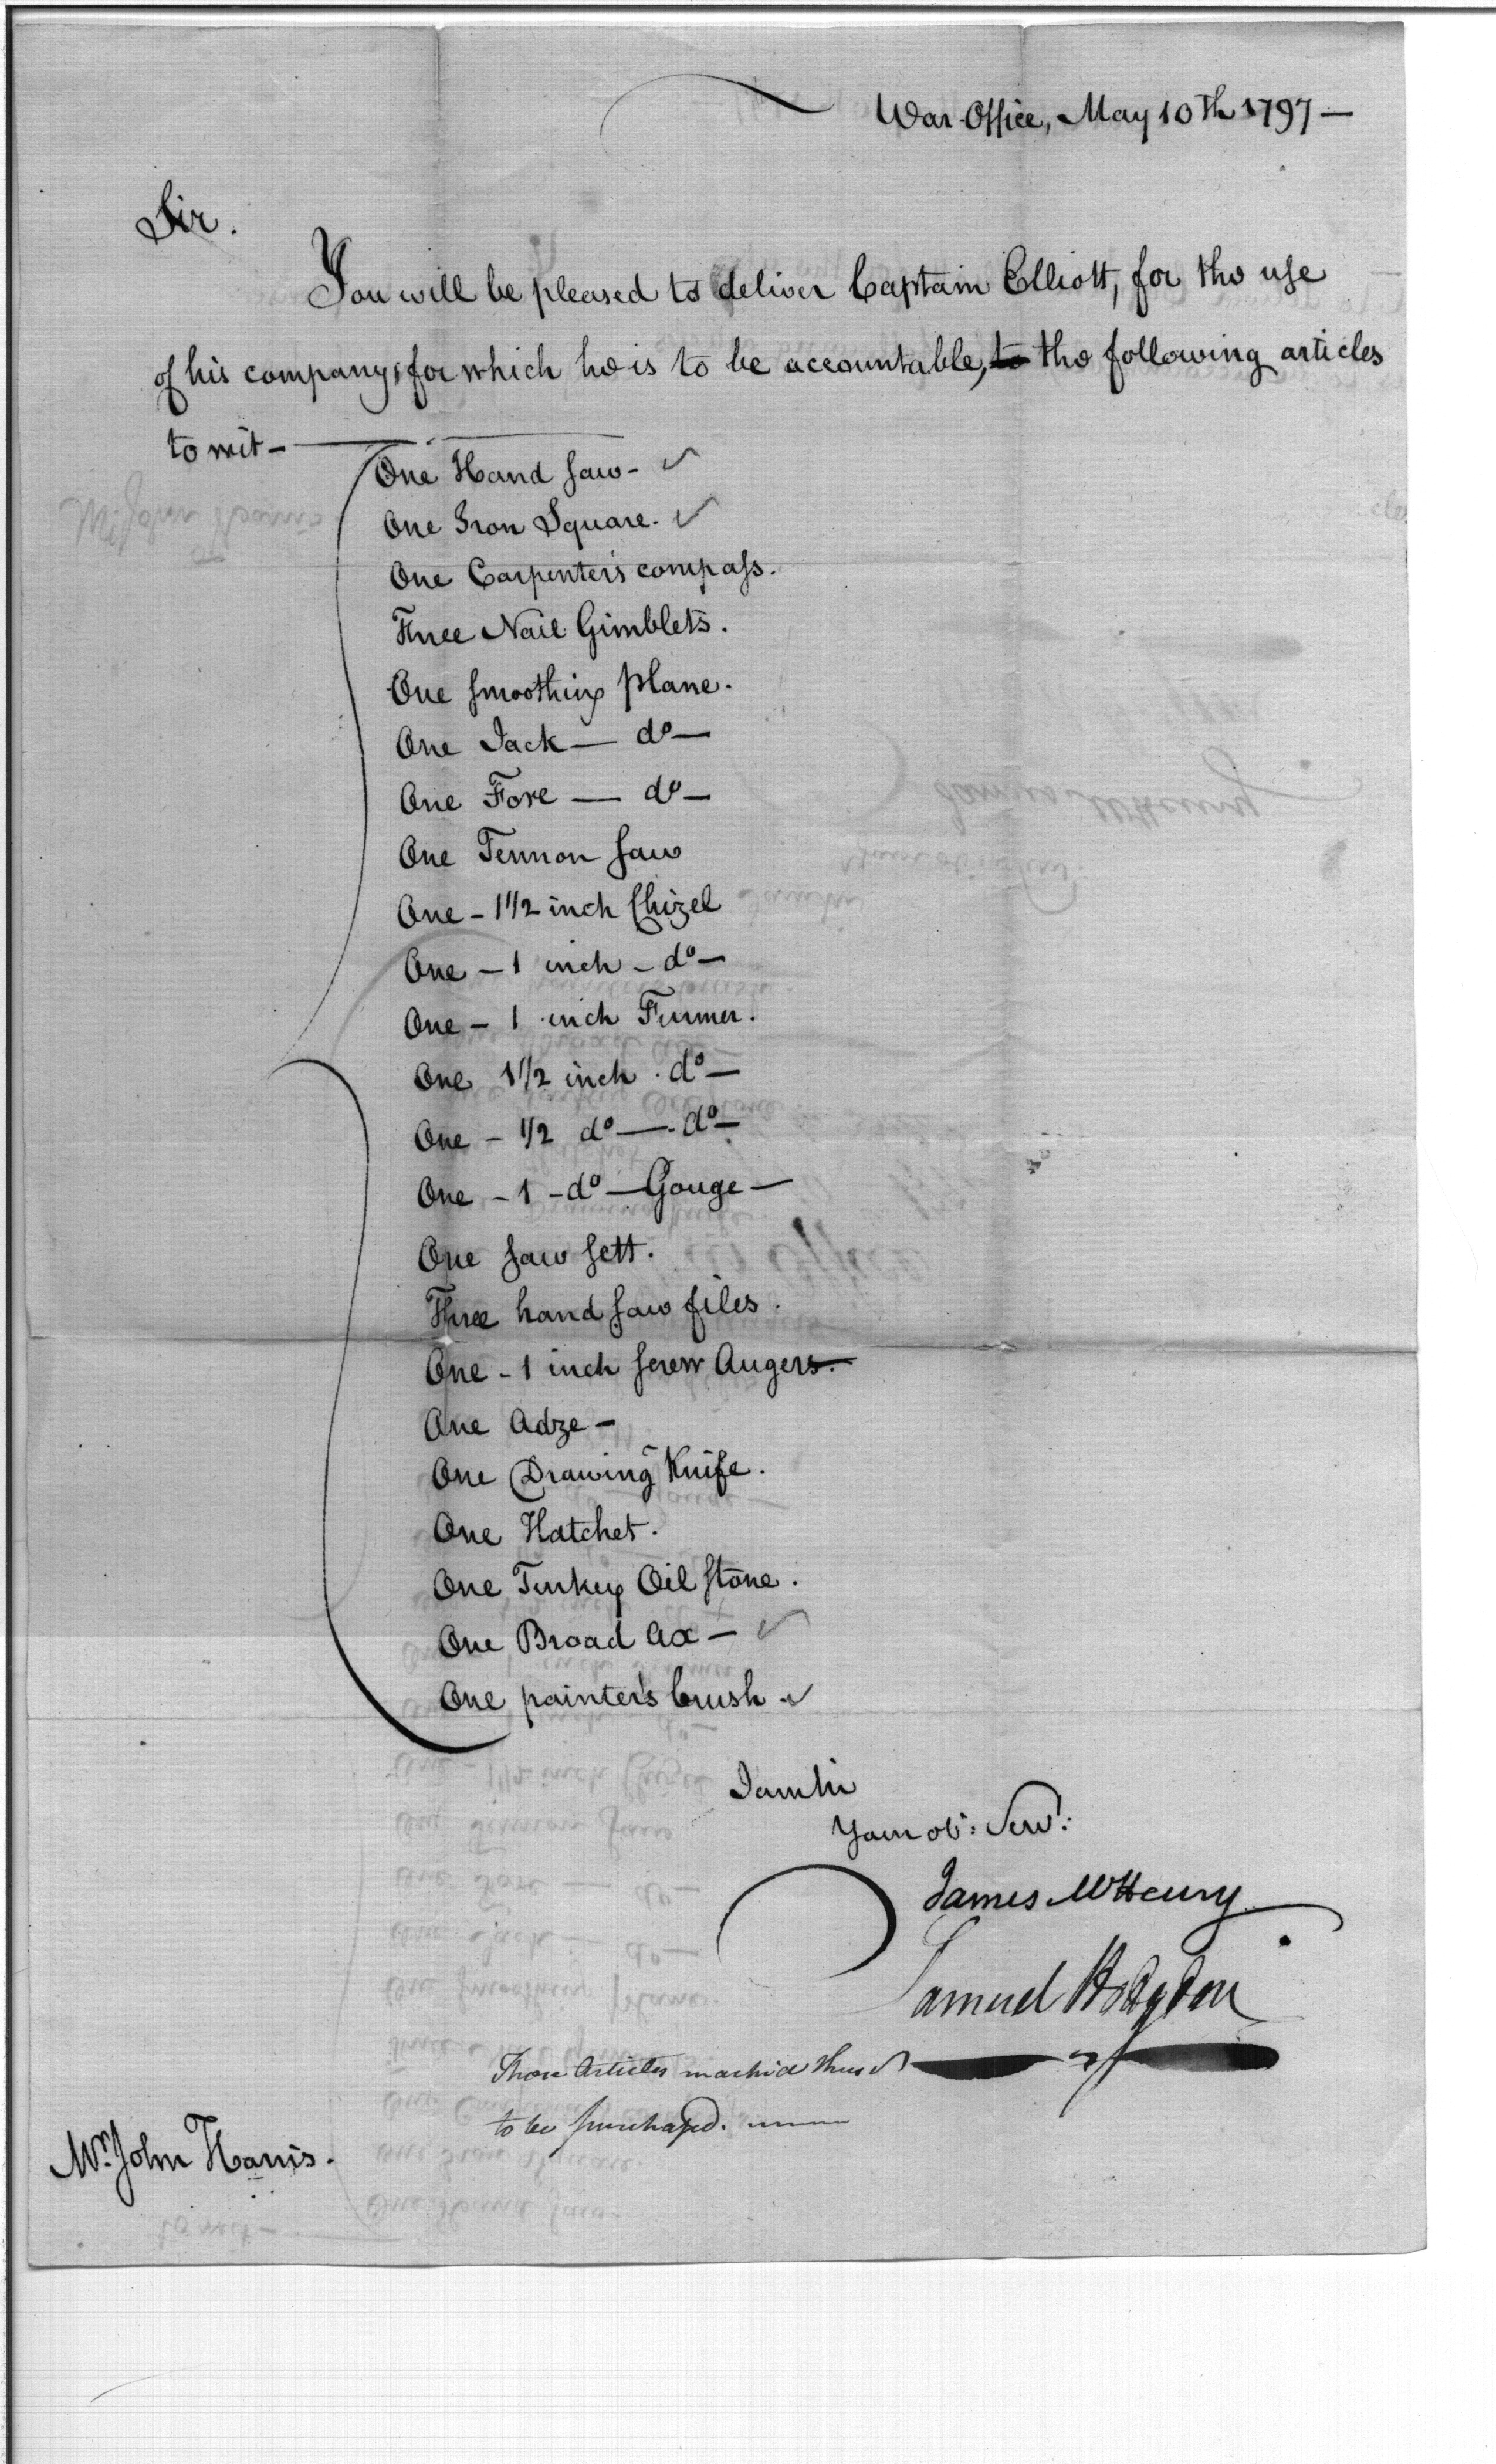 War-Office, May 10th 1797—
Sir.
You will be pleased to deliver Captain Elliott, for the use
of his company, for which he is to be accountable, to the following articles
to wit—
One Hand saw- ✓
One Iron Square. ✓
One Carpenter's compass.
Three Nail Gimblets.
One smoothing plane.
One Jack — do —
One Fore — do —
One Tennon saw
One - 1 1/2 inch Chizel
One - 1 inch - do —
One - 1 inch Furmer.
One 1 1/2 inch . do —
One - 1/2 do —. do —
One - 1 - do — Gouge —
One saw sett.
Three hand saw files.
One - 1 inch screw Augers.
One Adze —
One Drawing Knife.
One Hatchet.
One Turkey Oil stone.
One Broad ax — ✓
One painter's brush . ✓
I am Sir
Your ob: Serv.:
James McHenry
Samuel Hodgdon
Those Articles mark'd thus ✓
to be purchased.
Mr. John Harris.